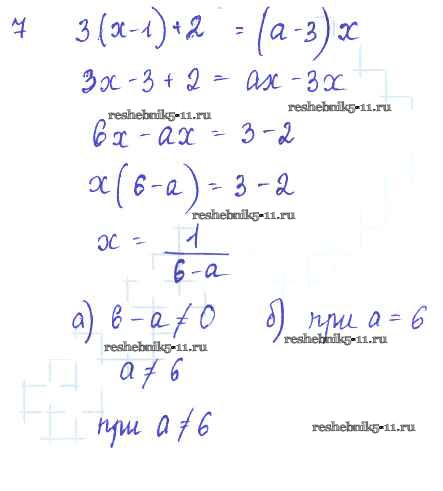 7 3(x-1)+2 = (a-3)x
3x-3+2 = ax-3x
reshebnik5-11.ru
reshebnik5-11.ru
6x-ax = 3-2
x(6-a) = 3-2
reshebnik5-11.ru
x = 1/(6-a)
а) 6-a≠0 б) при a=6
reshebnik5-11.ru
reshebnik5-11.ru
a≠6
при a≠6
reshebnik5-11.ru